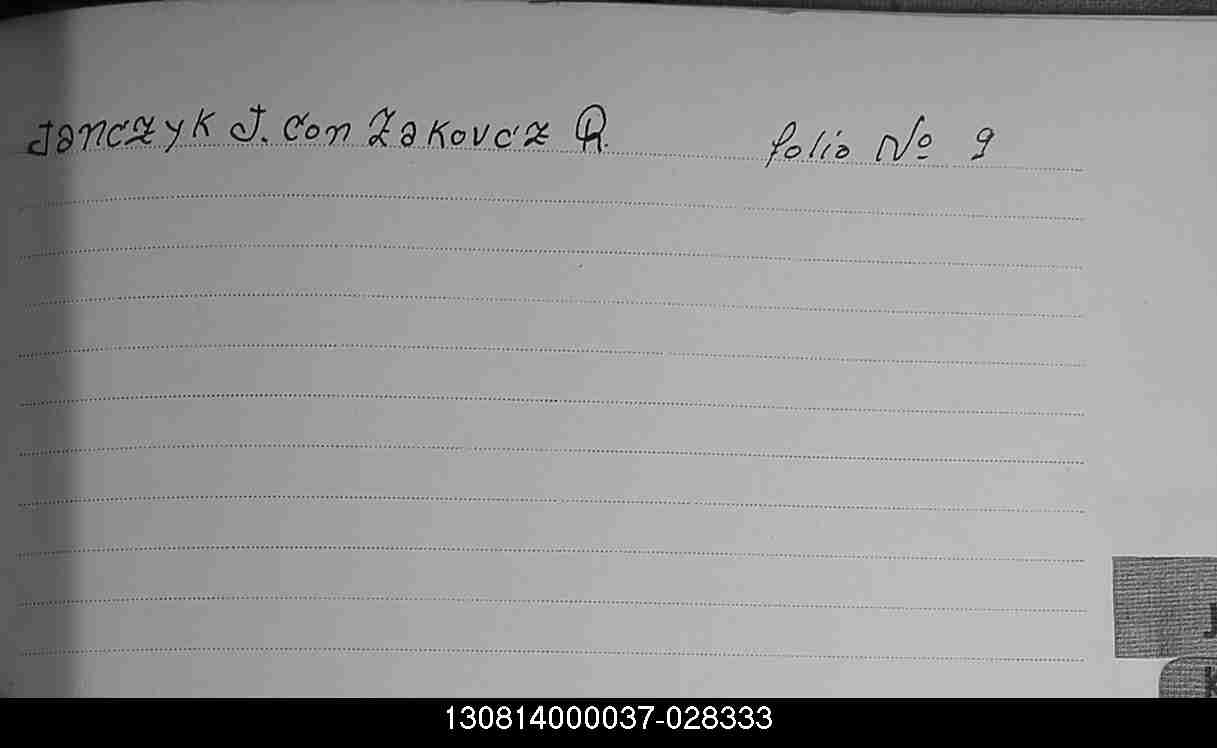 Janczyk J. con Zakovcz R. folio Nº 9
J
K
130814000037-028333